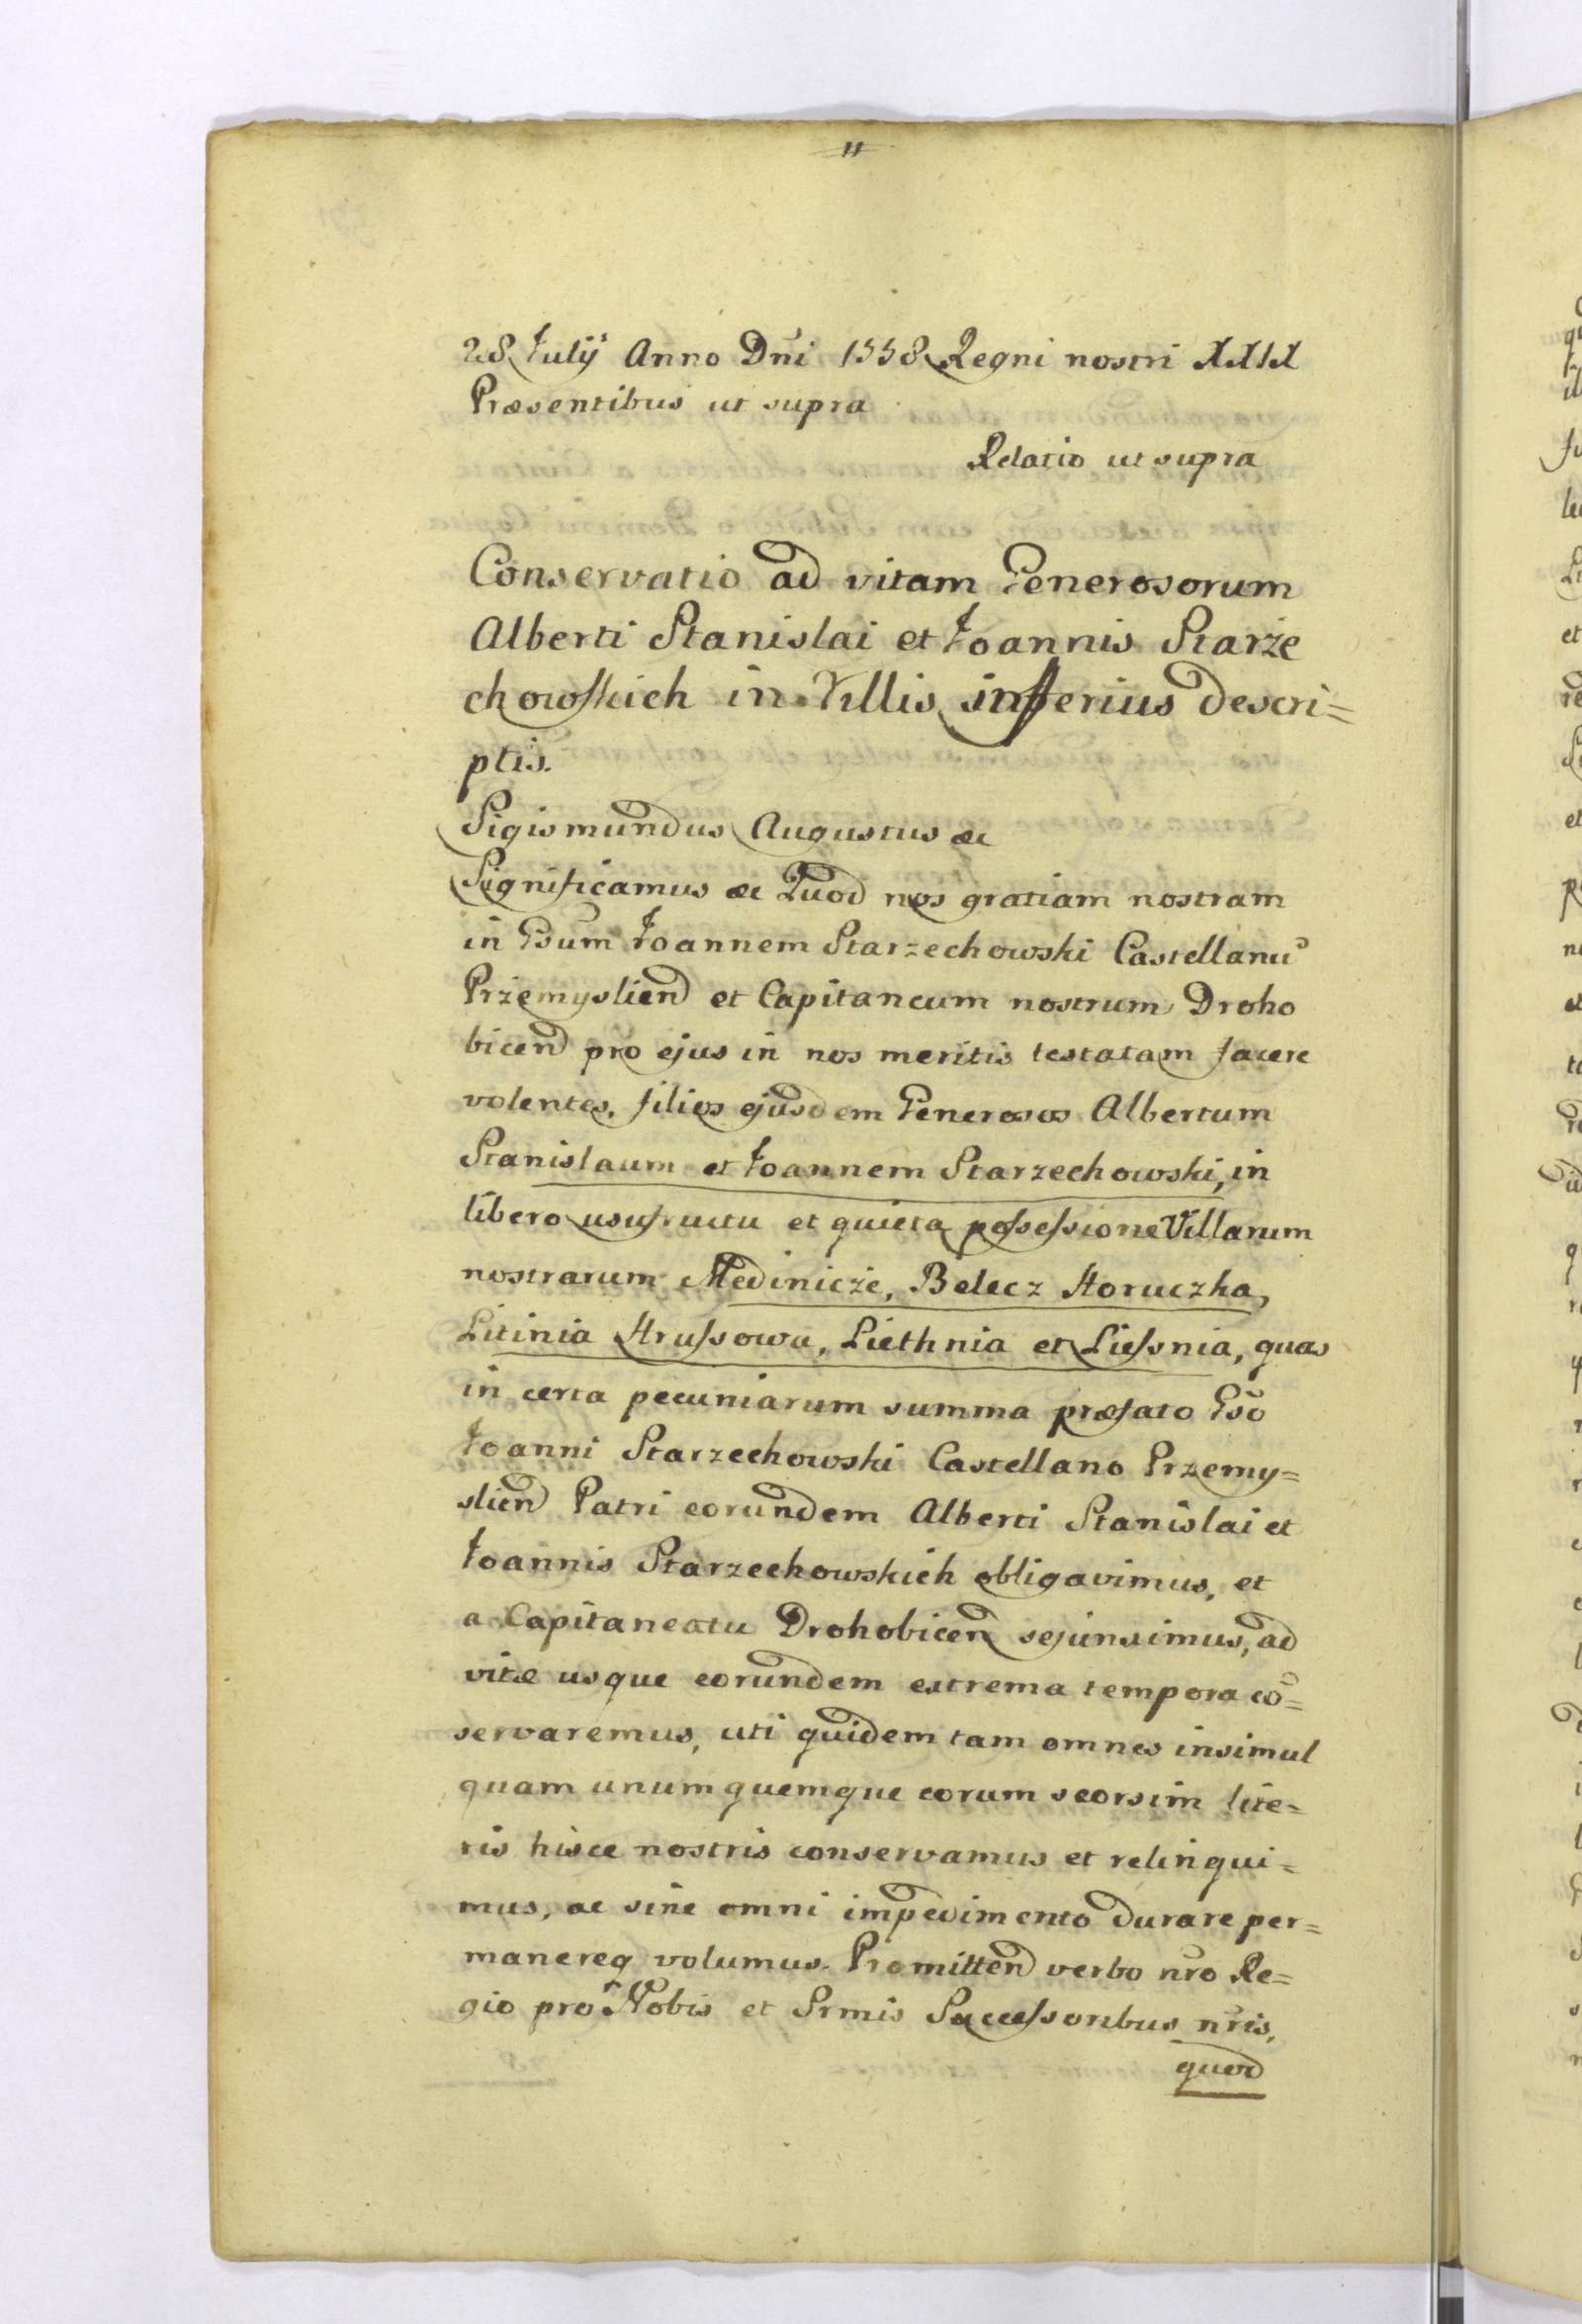 11
28 July Anno Dni 1558 Regni nostri XXIX
Præsentibus ut supra
Relatio ut supra
Conservatio ad vitam Generosorum
Alberti Stanislai et Joannis Starze
chowskich in Villis inferius descri=
ptis.
Sigismundus Augustus &c
Significamus &c Quod nos gratiam nostram
in Gsum Joannem Starzechowski Castellanū
Przemyslien et Capitaneum nostrum Droho
bicen pro ejus in nos meritis testatam facere
volentes, filios ejusdem Generosos Albertum
Stanislaum et Joannem Starzechowski, in
libero usufructu et quieta possessione Villarum
nostrarum Medinicze, Belecz Horuczka,
Litinia Hrussowa, Liethnia et Liessnia, quas
in certa pecuniarum summa præfato Gso
Joanni Starzechowski Castellano Przemy=
slien Patri eorundem Alberti Stanislai et
Joannis Starzechowskich obligavimus, et
a Capitaneatu Drohobicen sejunximus, ad
vitæ usque eorundem extrema tempora cō=
servaremus, uti quidem tam omnes insimul
quam unumquemque eorum seorsim lite=
ris hisce nostris conservamus et relinqui=
mus, ac sine omni impedimento durare per=
manereq volumus. Promitten verbo nro Re=
gio pro Nobis et Srmis Successoribus nris,
quod